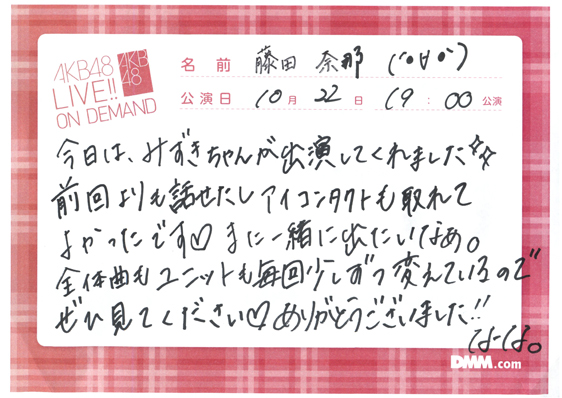 AKB48
LIVE!!
ON DEMAND
AKB
48
名前 藤田 奈那 (°∀°)
公演日 10月 22日 19:00公演
今日は、みずきちゃんが出演してくれました☆☆
前回よりも話せたしアイコンタクトも取れて
よかったです♡ また一緒に出たいなぁ。
全体曲もユニットも毎回少しずつ変えているので
ぜひ見てください♡ ありがとうございました!!
なーな。
DMM.com